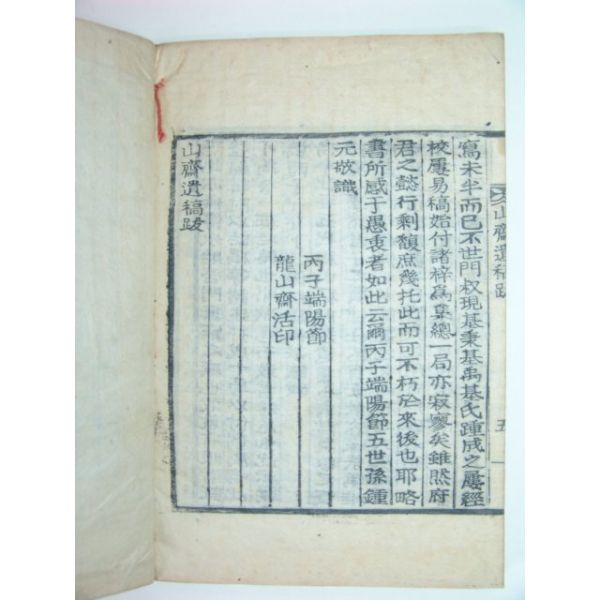 山齋遺稿跋
五
寫未半而已不世門叔現基秉基禹基氏踵成之屢經
校屢易稿始付諸梓為
總一局亦寂寥矣雖然府
君之懿行剩馥庶幾托此而可不朽於來後也耶略
書所感于愚衷者如此云爾丙子端陽節五世孫鍾
元敬識
丙子端陽節
龍山齋活印
山齋遺稿跋